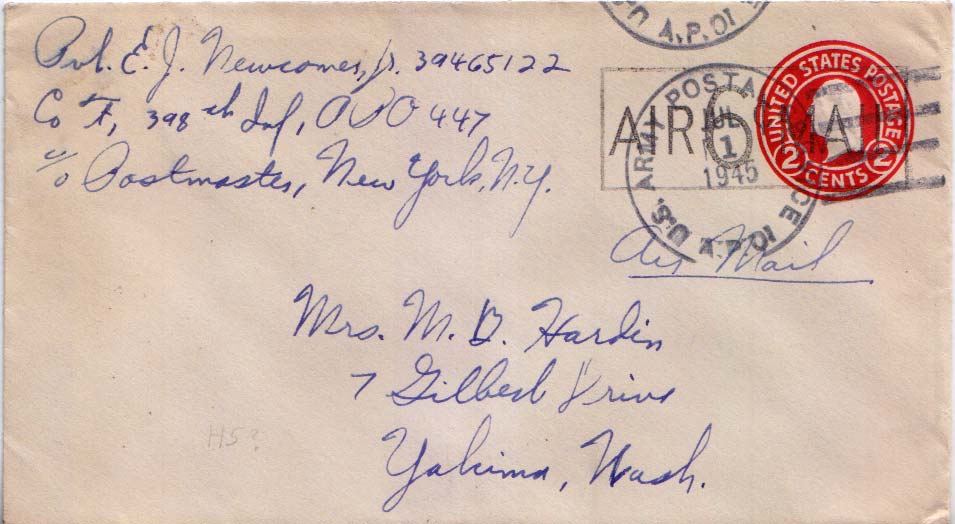 Pvt. E. J. Newcomer, Jr. 39465122
Co F, 398th Inf, APO 447
c/o Postmaster, New York, N.Y.
U.S. A.P.O.
UNITED STATES POSTAGE
2 CENTS 2
AIR 6¢ MAIL
U.S. ARMY POSTAL
JUL
1
1945
A.P.O.
Air Mail
Mrs. M. D. Hardin
7 Gilbert Drive
Yakima, Wash.
H5?